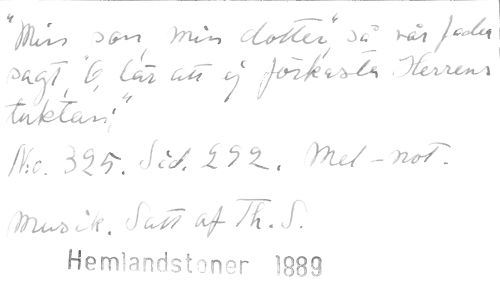 "Min son, min dotter," så vår fader
sagt, "O, lär att ej förkasta Herrens
tuktan;"
No. 325. Sid. 292. Mel-not.
Musik. Satt af Th. S.
Hemlandstoner 1889